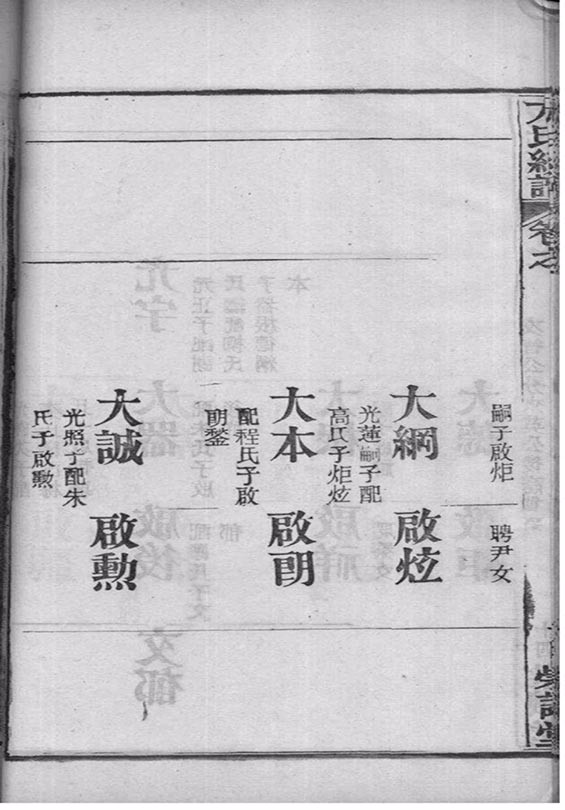 卷之
嗣子啟炬
聘尹女
大綱
光蓮嗣子配
高氏子炬炫
啟炫
大本
配程氏子啟
朙
啟朙
大誠
光照子配朱
氏子啟勳
啟勳